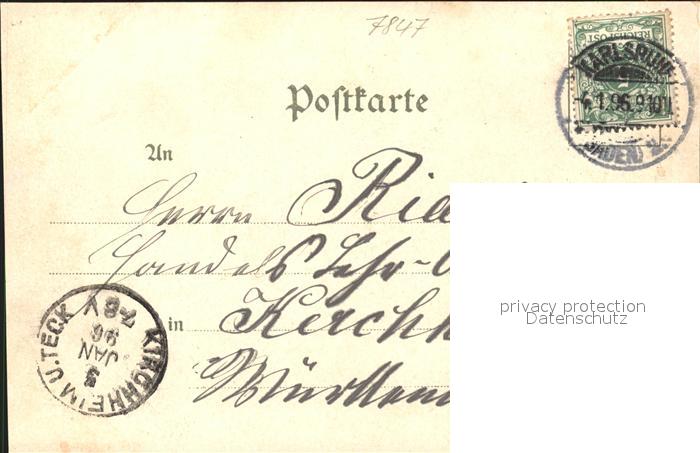 7847
REICHSPOST
KARLSRUHE
1.96.9
(BADEN)
Postkarte
An
Herrn
Handels Lehr-
in Kirchh
Württem
KIRCHHEIM U.TECK
JAN
96
7-8V
privacy protection
Datenschutz